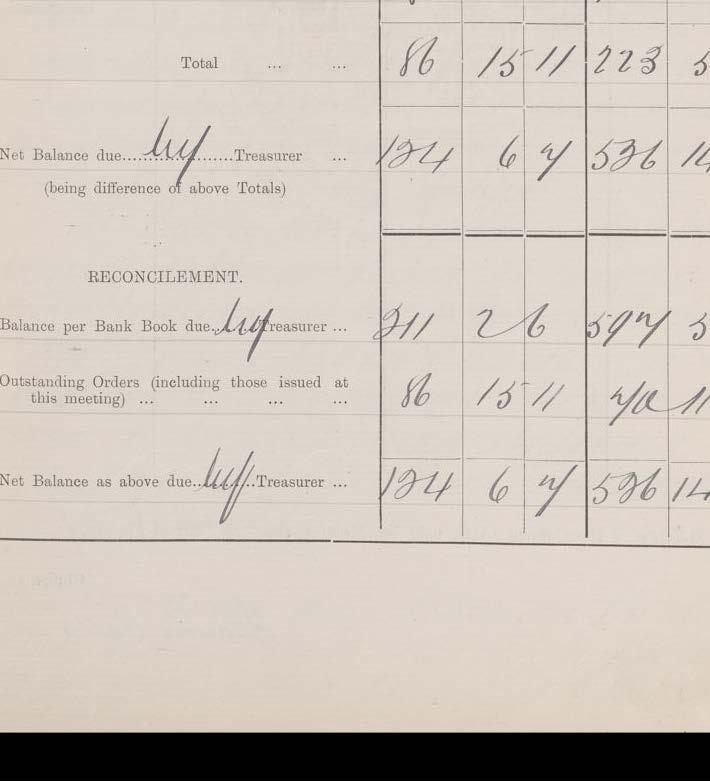 Total ... ... 86 15 11 223 5
Net Balance due....by....Treasurer ... 124 6 7 526 14
(being difference of above Totals)
RECONCILEMENT.
Balance per Bank Book due..by Treasurer ... 211 2 6 597 5
Outstanding Orders (including those issued at
this meeting) ... ... ... ... 86 15 11 70 11
Net Balance as above due..by..Treasurer ... 124 6 7 526 14